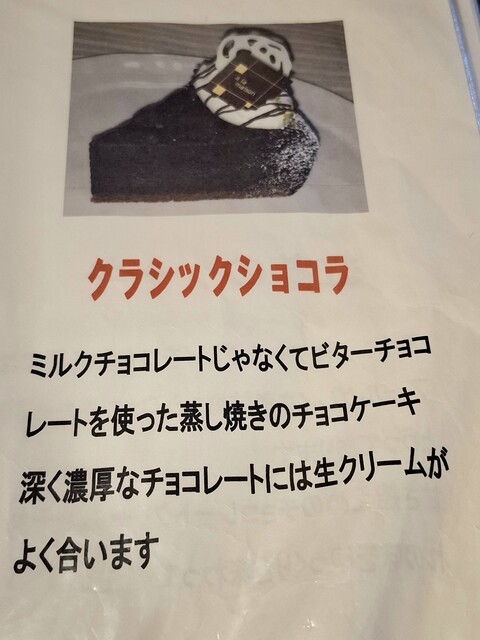 クラシックショコラ
ミルクチョコレートじゃなくてビターチョコ
レートを使った蒸し焼きのチョコケーキ
深く濃厚なチョコレートには生クリームが
よく合います